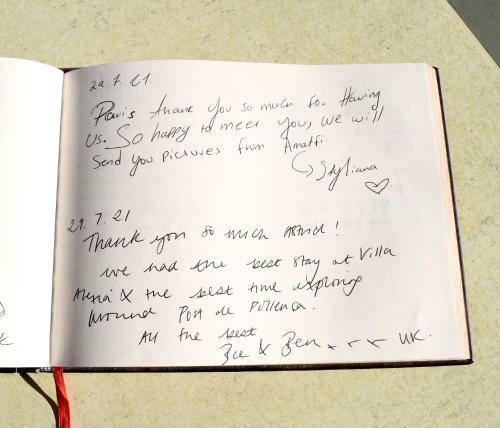 29.7.21
Paris thank you so much for Having
Us. So happy to meet you, we will
send you pictures from Amalfi
Styliana
29.7.21
Thank you so much Astrid!
we had the best stay at Villa
& the best time exploring
around Port de Pollenca.
All the best
Zoe & Ben x x x UK.